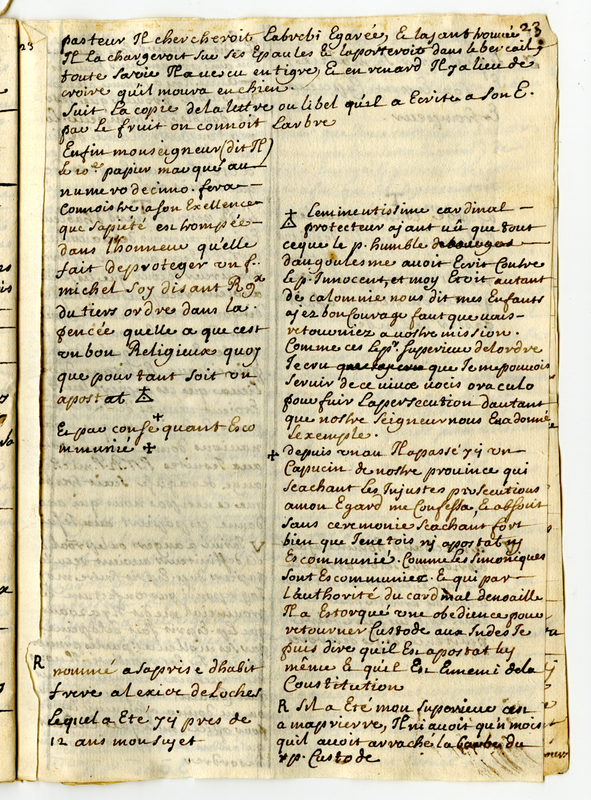 23
23
pasteur Il chercheroit Labrebi Egarée, & layant trouuée
Il La chargeroit sur ses Epaules & laporteroit dans le bercail,
toute sa vie Il a uescu en tigre, & en renard Il y a lieu de
croire qu'il moura en chien.
Suit La copie dela lettre ou libel qu'il a Ecrite a son E.
par Le fruit on connoit Larbre
Enfin monseigneur (dit Il)
Le papier marqué au
numero decimo. fera
Connoistre a son Exellence
que sa pieté est trompée
dans l'honneur qu'elle
fait de proteger un f.
michel Soy disant
du tiers ordre dans la
pencée quelle a que cest
un bon Religieux quoy
que pourtant soit un
apostat
Et par consequant Esco
mmunié
R nommé a sa prise dhabit
frere alexice de Loches
Lequel a Eté yij pres de
12 ans mon sujet
Leminentissime cardinal
protecteur ajant uû que tout
ceque le p. humble
dangoulesme auoit Ecrit Contre
Le p. Innocent, et moy Etoit autant
de calomnie nous dit mes Enfants
ajez bon Courage faut que uais
retourniez a vostre mission.
Comme ces Le pr. superieur delordre
Ie cru que Ie me pouuois
seruir de ce uiuæ uocis oraculo
pour fuir Lapersecution dautant
que nostre seigneur nous En a donné
Lexemple.
depuis un an Il a passé yij un
Capucin de nostre prouince qui
scachant Les Injustes prosecutions
a mon Egard me Confessa, & absout
sans ceremonie scachant fort
bien que Ie netois nj apostat nj
Escommunié. Comme les simonicques
sont Escommuniez. & que par
L'authorité du cardinal
Il a Estorqué une obedience pour
retourner Custode aux Indes Ie
puis dire qu'il Est apostat luj
même & quil Est Ennemi dela
Constitution
R Sil a Eté mon superieur
Il ni auoit qu'n mois
quil auoit arraché la barbe du
r p. Custode